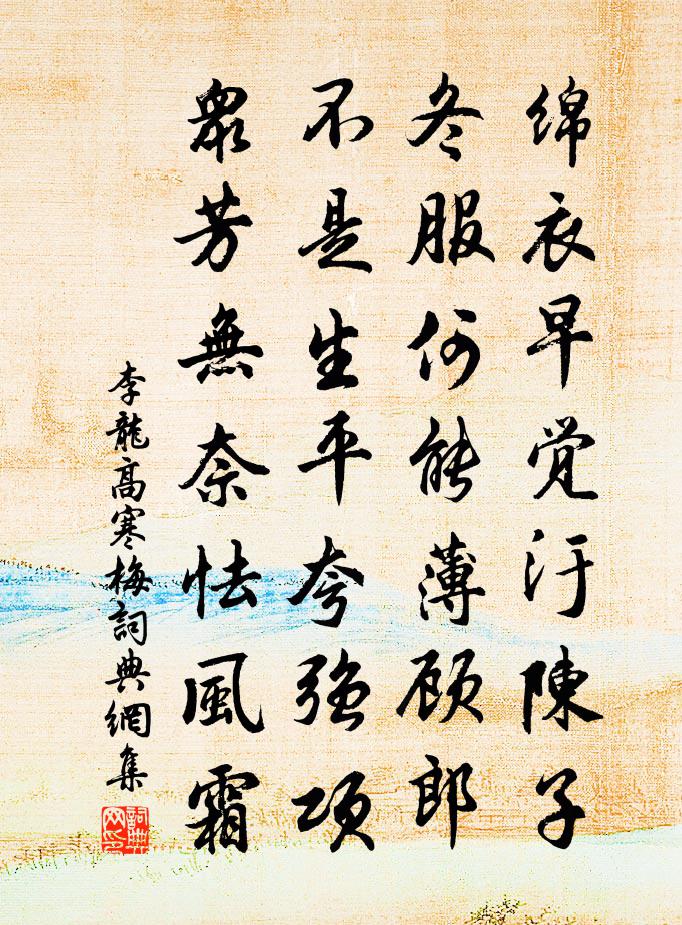 绵衣早觉汙陳子
冬服何能薄顾郎
不是生平夸強项
衆芳無奈怯風霜
李龍高寒梅詞典網集
詞典网印